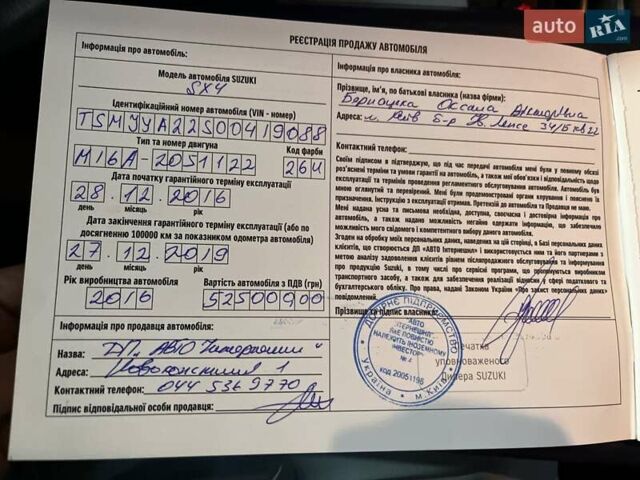 auto RIA.com
РЕЄСТРАЦІЯ ПРОДАЖУ АВТОМОБІЛЯ
Інформація про автомобіль:
Модель автомобіля SUZUKI
SX4
Ідентифікаційний номер автомобіля (VIN - номер)
TSMJYA22S00419088
Тип та номер двигуна
Код фарби
M16A-2051122
26U
Дата початку гарантійного терміну експлуатації
28.12.2016
день місяць рік
Дата закінчення гарантійного терміну експлуатації (або по
досягненню 100000 км за показником одометра автомобіля)
27.12.2019
день місяць рік
Рік виробництва автомобіля
Вартість автомобіля з ПДВ (грн)
2016
52500900
Інформація про продавця автомобіля:
Назва: ДП „АВТО
Адреса: 1
Контактний телефон: 044 536 9770
Підпис відповідальної особи продавця:
Інформація про власника автомобіля:
Прізвище, ім'я, по батькові власника (назва фірми):
Оксана Вікторівна
Адреса: м. Київ б-р 34/Б кв 22
Своїм підписом я підтверджую, що під час передачі автомобіля мені були у повному обсязі
роз'яснені терміни та умови гарантії на автомобіль, а також мої обов'язки і відповідальність щодо
експлуатації та термінів проведення регламентного обслуговування автомобіля. Автомобіль був
мною оглянутий та перевірений. Мені були продемонстровані органи керування і пояснені їх
призначення, Інструкцію з експлуатації отримав. Претензій до автомобіля та Продавця не маю.
Мені надана усна та письмова необхідна, доступна, своєчасна і достовірна інформація про
автомобіль, а також надано можливість негайно одержати інформацію, що забезпечило
можливість мого свідомого і компетентного вибору даного автомобіля.
Згоден на обробку моїх персональних даних, наведених на цій сторінці, в Базі персональних даних
клієнтів, що створюється ДП «АВТО Інтернешнл» і використовується ним та його партнерами з
метою аналізу задоволення клієнтів рівнем післяпродажного обслуговування та інформування
про продукцію Suzuki, в тому числі про сервісні програми, що пропонуються виробником
транспортного засобу, а також для забезпечення реалізації відносин у сфері податкового та
бухгалтерського обліку. Про права, надані Законом України «Про захист персональних даних»
повідомлений.
Прізвище та підпис власника:
ДОЧІРНЄ ПІДПРИЄМСТВО
"АВТО
ІНТЕРНЕШНЛ"
ЯКЕ ПОВНІСТЮ
НАЛЕЖИТЬ ІНОЗЕМНОМУ
ІНВЕСТОРУ"
№ 4
КОД 20051195
Україна * м.Київ
Печатка
уповноваженого
дилера SUZUKI